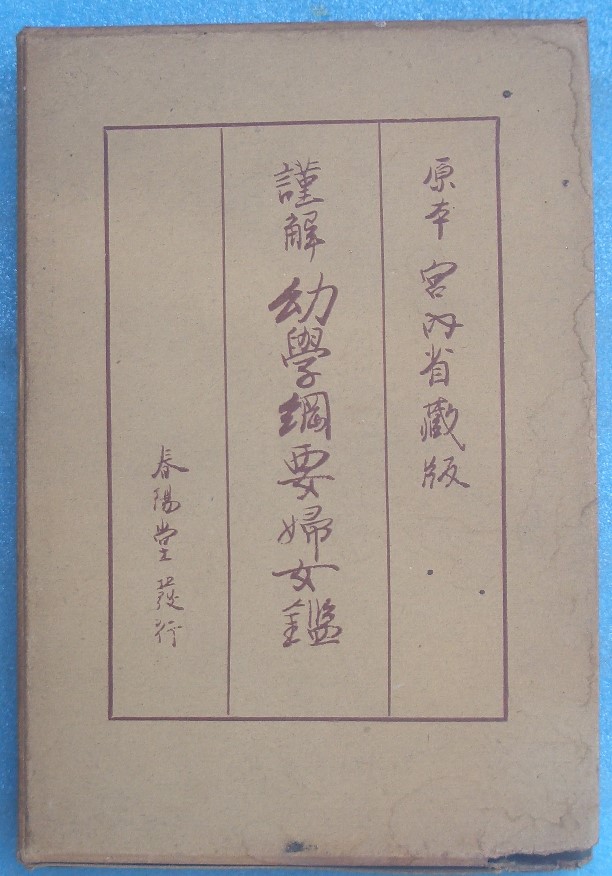 原本 宮内省藏版
謹解 幼學綱要婦女鑑
春陽堂發行